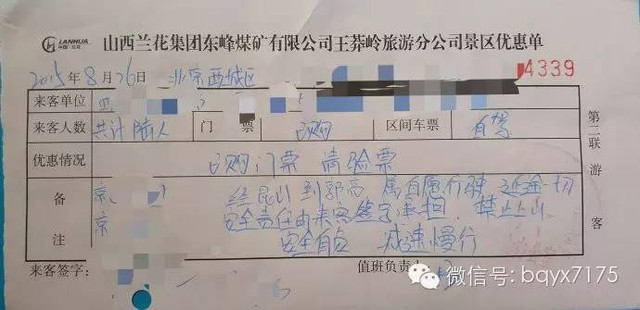 LANHUA
山西兰花集团东峰煤矿有限公司王莽岭旅游分公司景区优惠单
2015年8月26日 北京西城区
4339
来客单位
来客人数 共计陆人 门票 已购 区间车票 自驾
优惠情况 已购门票 请验票
备注 京
经昆山到郭亮 属自愿行驶 途一切
京 安全责任由来客签字承担 禁止上山
安全自负 减速慢行
第二联 游客
来客签字: 值班负责人
微信号: bqyx7175